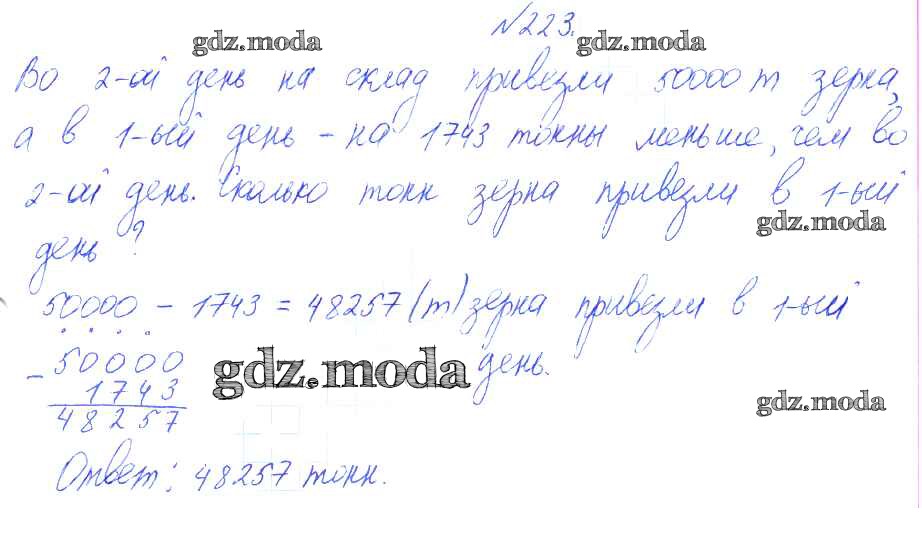 №223.
gdz.moda gdz.moda
Во 2-ой день на склад привезли 50000 т зерна,
а в 1-ый день - на 1743 тонны меньше, чем во
2-ой день. Сколько тонн зерна привезли в 1-ый
gdz.moda
день?
50000 - 1743 = 48257 (т) зерна привезли в 1-ый
день.
- 50000
1743
48257
gdz.moda
gdz.moda
Ответ: 48257 тонн.